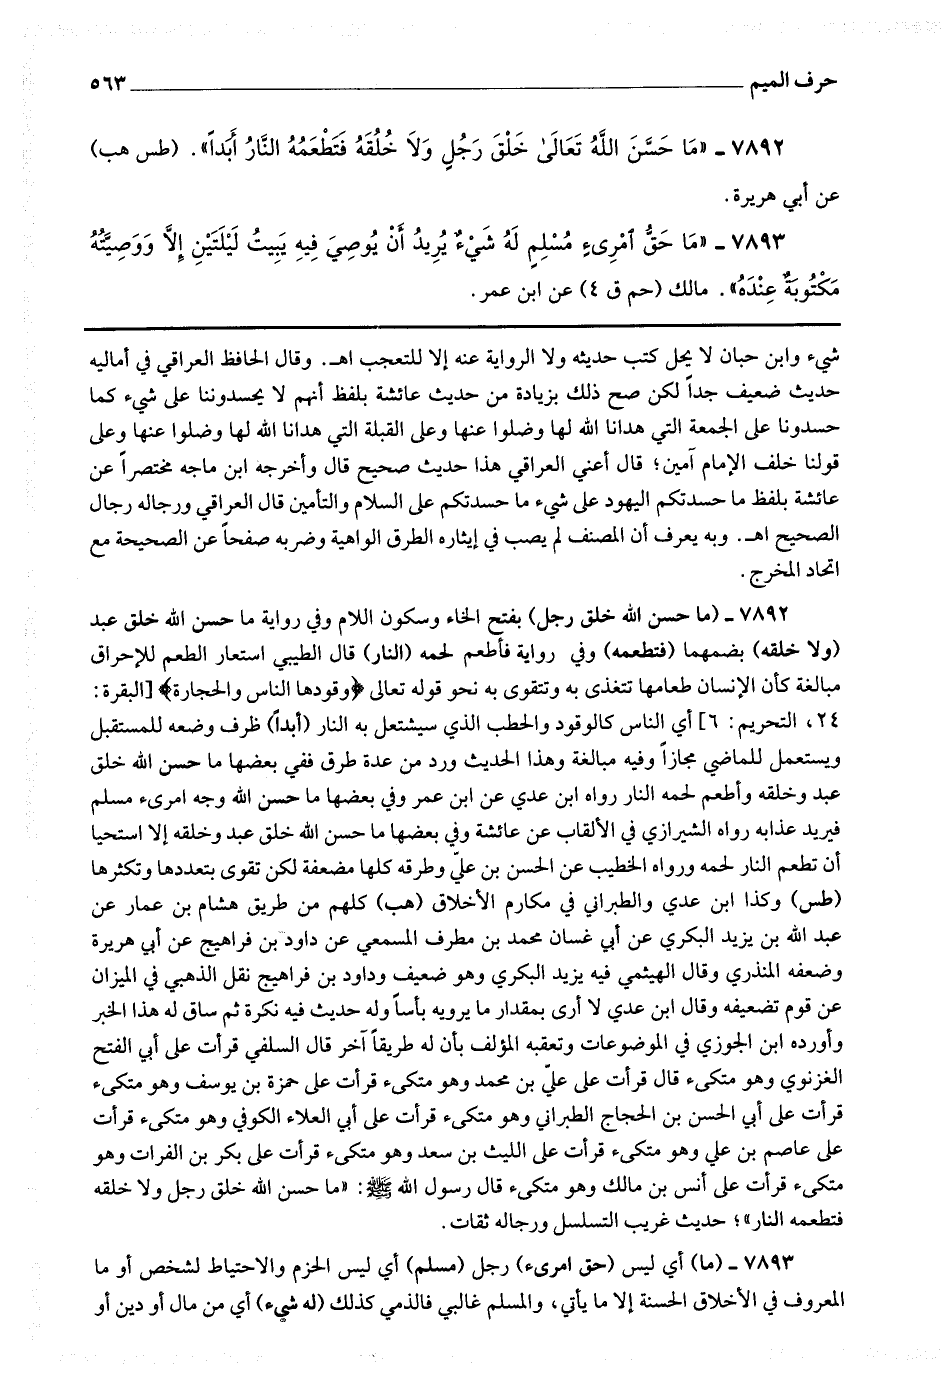 حرف الميم ٥٦٣
٧٨٩٢ ـ «مَا حَسَّنَ اللَّهُ تَعَالَىٰ خَلْقَ رَجُلٍ وَلَا خُلُقَهُ فَتَطْعَمُهُ النَّارُ أَبَداً». (طس هب)
عن أبي هريرة.
٧٨٩٣ ـ «مَا حَقُّ ٱمْرِىءٍ مُسْلِمٍ لَهُ شَيْءٌ يُرِيدُ أَنْ يُوصِيَ فِيهِ يَبِيتُ لَيْلَتَيْنِ إِلَّا وَوَصِيَّتُهُ
مَكْتُوبَةٌ عِنْدَهُ». مالك (حم ق ٤) عن ابن عمر.
شيء وابن حبان لا يحل كتب حديثه ولا الرواية عنه إلا للتعجب اهـ. وقال الحافظ العراقي في أماليه
حديث ضعيف جداً لكن صح ذلك بزيادة من حديث عائشة بلفظ أنهم لا يحسدوننا على شيء كما
حسدونا على الجمعة التي هدانا الله لها وضلوا عنها وعلى القبلة التي هدانا الله لها وضلوا عنها وعلى
قولنا خلف الإمام آمين؛ قال أعني العراقي هذا حديث صحيح قال وأخرجه ابن ماجه مختصراً عن
عائشة بلفظ ما حسدتكم اليهود على شيء ما حسدتكم على السلام والتأمين قال العراقي ورجاله رجال
الصحيح اهـ. وبه يعرف أن المصنف لم يصب في إيثاره الطرق الواهية وضربه صفحاً عن الصحيحة مع
اتحاد المخرج.
٧٨٩٢ ـ (ما حسن الله خلق رجل) بفتح الخاء وسكون اللام وفي رواية ما حسن الله خلق عبد
(ولا خلقه) بضمهما (فتطعمه) وفي رواية فأطعم لحمه (النار) قال الطيبي استعار الطعم للإحراق
مبالغة كأن الإنسان طعامها تتغذى به وتتقوى به نحو قوله تعالى ﴿وقودها الناس والحجارة﴾ [البقرة:
٢٤، التحريم: ٦] أي الناس كالوقود والحطب الذي سيشتعل به النار (أبداً) ظرف وضعه للمستقبل
ويستعمل للماضي مجازاً وفيه مبالغة وهذا الحديث ورد من عدة طرق ففي بعضها ما حسن الله خلق
عبد وخلقه وأطعم لحمه النار رواه ابن عدي عن ابن عمر وفي بعضها ما حسن الله وجه امرىء مسلم
فيريد عذابه رواه الشيرازي في الألقاب عن عائشة وفي بعضها ما حسن الله خلق عبد وخلقه إلا استحيا
أن تطعم النار لحمه ورواه الخطيب عن الحسن بن عليّ وطرقه كلها مضعفة لكن تقوى بتعددها وتكثرها
(طس) وكذا ابن عدي والطبراني في مكارم الأخلاق (هب) كلهم من طريق هشام بن عمار عن
عبد الله بن يزيد البكري عن أبي غسان محمد بن مطرف المسمعي عن داود بن فراهيج عن أبي هريرة
وضعفه المنذري وقال الهيثمي فيه يزيد البكري وهو ضعيف وداود بن فراهيج نقل الذهبي في الميزان
عن قوم تضعيفه وقال ابن عدي لا أرى بمقدار ما يرويه بأساً وله حديث فيه نكرة ثم ساق له هذا الخبر
وأورده ابن الجوزي في الموضوعات وتعقبه المؤلف بأن له طريقاً آخر قال السلفي قرأت على أبي الفتح
الغزنوي وهو متكىء قال قرأت على عليّ بن محمد وهو متكىء قرأت على حمزة بن يوسف وهو متكىء
قرأت على أبي الحسن بن الحجاج الطبراني وهو متكىء قرأت على أبي العلاء الكوفي وهو متكىء قرأت
على عاصم بن علي وهو متكىء قرأت على الليث بن سعد وهو متكىء قرأت على بكر بن الفرات وهو
متكىء قرأت على أنس بن مالك وهو متكىء قال رسول الله ﷺ: «ما حسن الله خلق رجل ولا خلقه
فتطعمه النار»؛ حديث غريب التسلسل ورجاله ثقات.
٧٨٩٣ ـ (ما) أي ليس (حق امرىء) رجل (مسلم) أي ليس الحزم والاحتياط لشخص أو ما
المعروف في الأخلاق الحسنة إلا ما يأتي، والمسلم غالبي فالذمي كذلك (له شيء) أي من مال أو دين أو